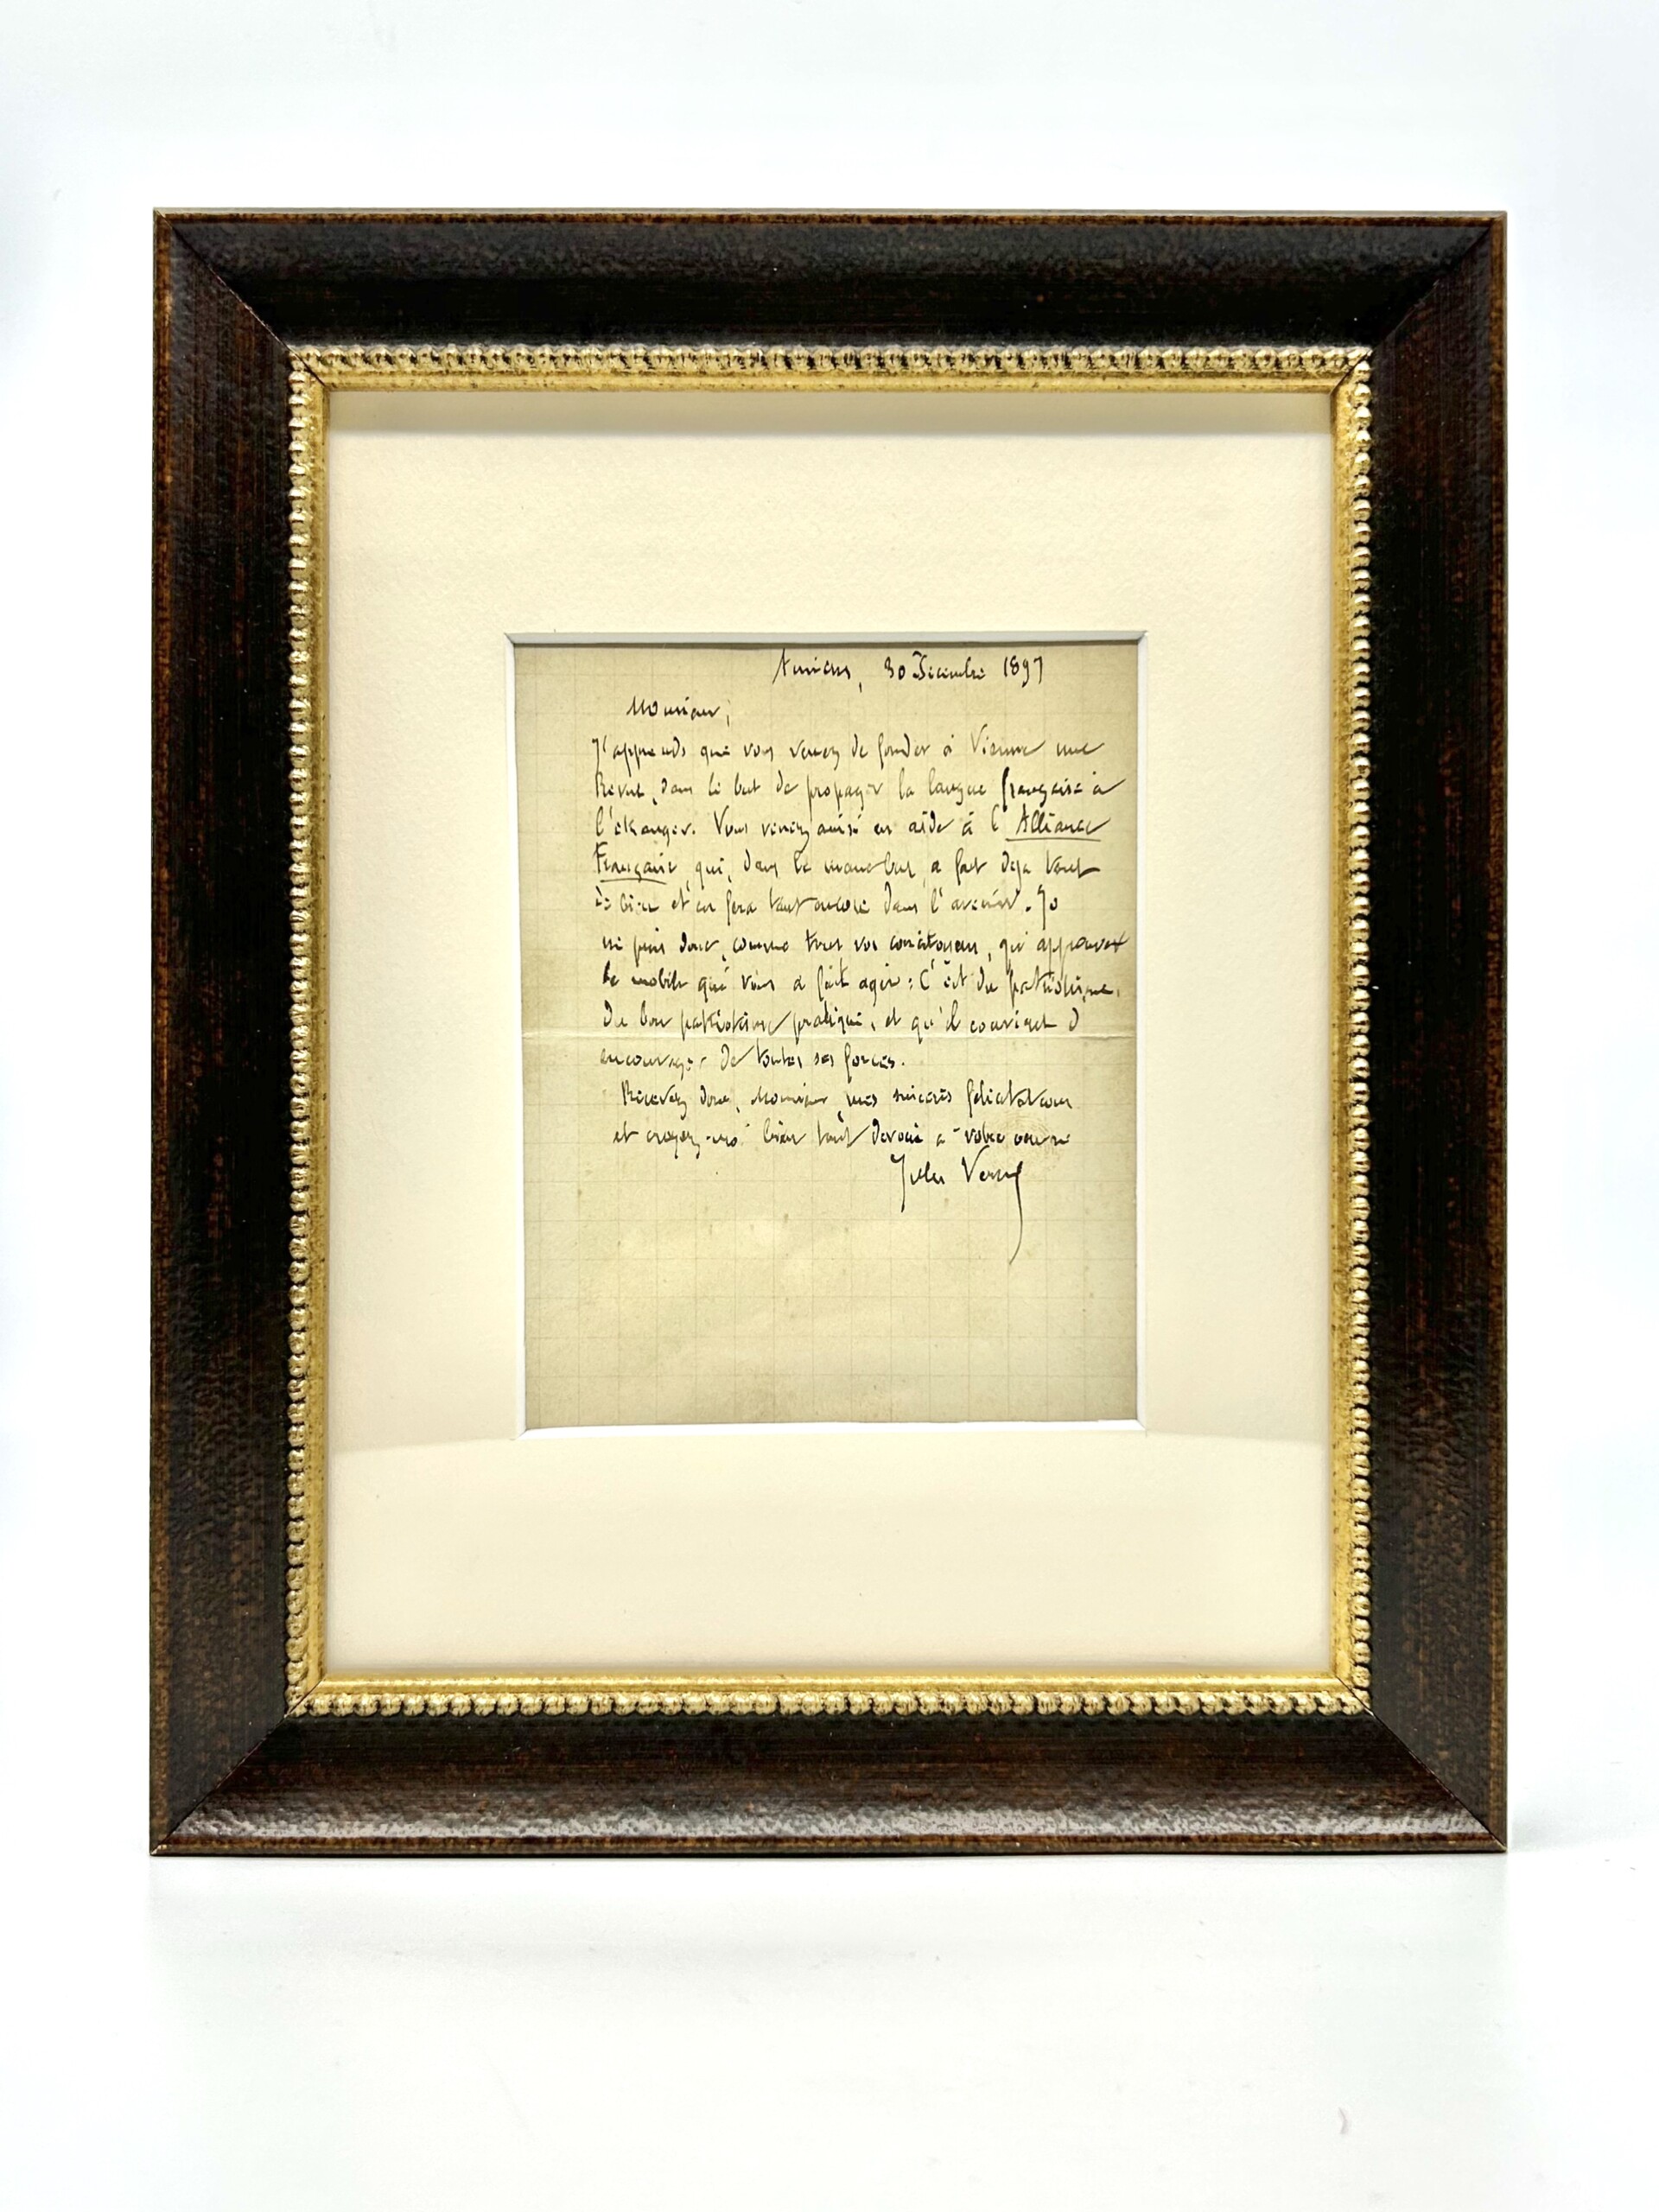 Amiens, 30 Décembre 1897
Monsieur,
J'apprends que vous venez de fonder à Vienne une
Revue, dans le but de propager la langue française à
l'étranger. Vous venez ainsi en aide à l'Alliance
Française qui, dans le même but, a fait déjà tant
de bien et en fera tant encore dans l'avenir. Je
ne puis donc, comme tous vos concitoyens, qu'approuver
le mobile qui vous a fait agir : C'est du patriotisme,
du bon patriotisme pratique, et qu'il convient d
encourager de toutes ses forces.
Recevez donc, Monsieur, mes sincères félicitations
et croyez-moi bien tout dévoué à votre œuvre
Jules Verne